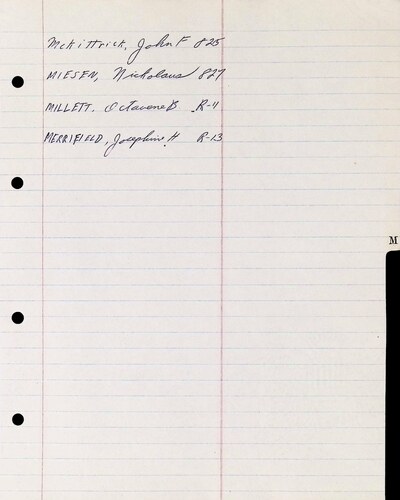 McKittrick, John F 825
MIESEN, Nickolaus 827
MILLETT, Octavene B. R-11
MERRIFIELD, Josephine H R-13
M